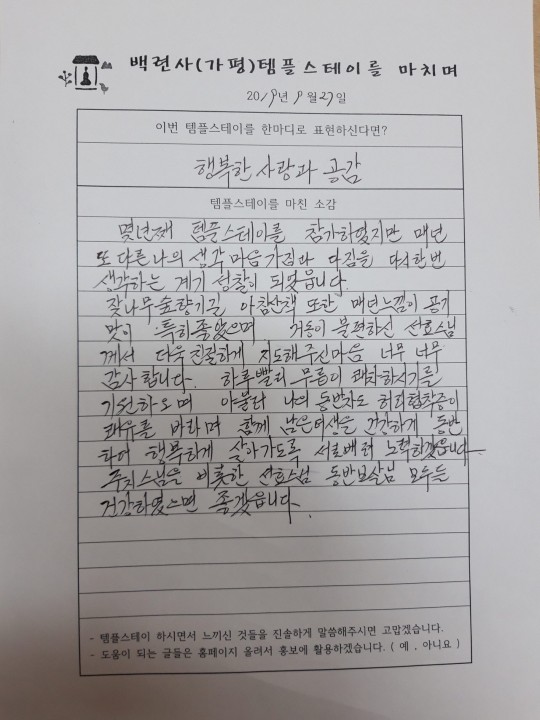 백련사(가평)템플스테이를 마치며
2019년 9월 27일
이번 템플스테이를 한마디로 표현하신다면?
행복한 사랑과 공감
템플스테이를 마친 소감
몇년째 템플스테이를 참가하였지만 매년
또 다른 나의 생각 마음가짐과 다짐을 다시한번
생각하는 계기 성찰이 되었읍니다.
잣나무숲향기길 아침산책 또한 매년느낌이 공기
맛이 특히좋았으며 거동이 불편하신 선효스님
께서 더욱친절하게 지도해주신마음 너무 너무
감사합니다. 하루빨리 무릎이 쾌차하시기를
기원하오며 아울러 나의 동반자도 허리협착증이
쾌유를 바라며 함께 남은여생을 건강하게 동반
하여 행복하게 살아가도록 서로배려 노력하겠읍니다
주지스님을 비롯한 선효스님 동반보살님 모두들
건강하였으면 좋겠읍니다.
- 템플스테이 하시면서 느끼신 것들을 진솔하게 말씀해주시면 고맙겠습니다.
- 도움이 되는 글들은 홈페이지 올려서 홍보에 활용하겠습니다. ( 예 , 아니요 )